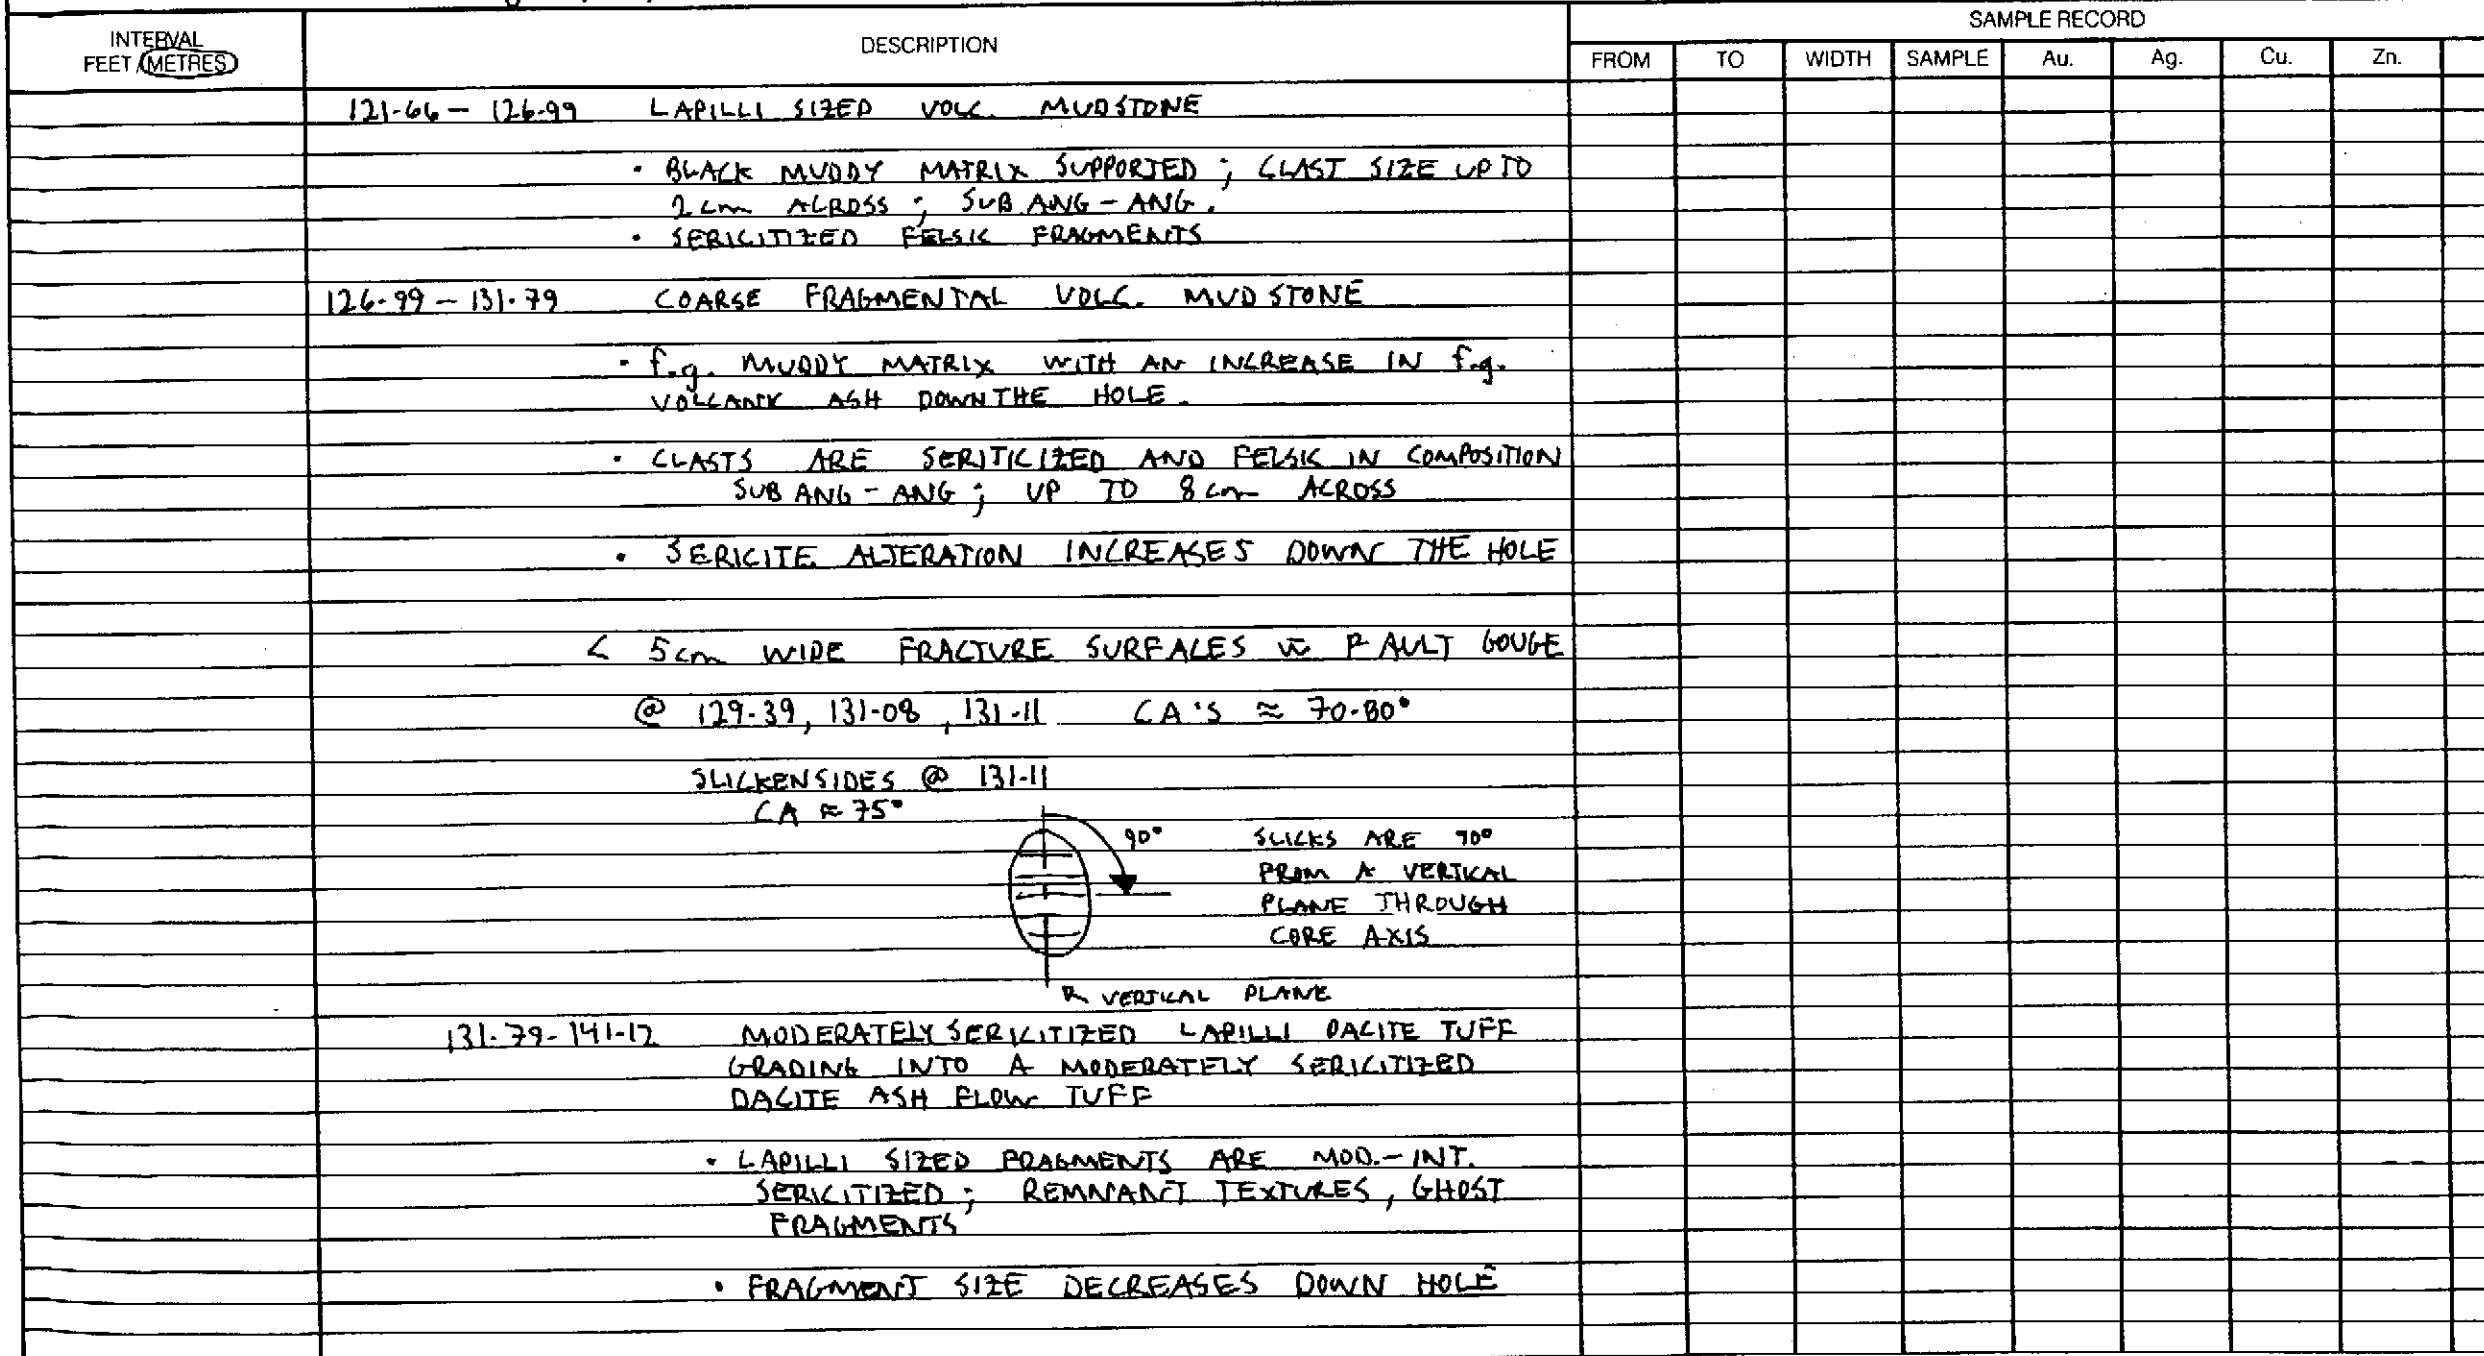 SAMPLE RECORD
INTERVAL
FEET / METRES
DESCRIPTION
FROM TO WIDTH SAMPLE Au. Ag. Cu. Zn.
121-66 - 126-99 LAPILLI SIZED VOLC. MUDSTONE
• BLACK MUDDY MATRIX SUPPORTED ; CLAST SIZE UP TO
2 cm ACROSS ; SUB ANG - ANG.
• SERICITIZED FELSIC FRAGMENTS
126-99 - 131-79 COARSE FRAGMENTAL VOLC. MUDSTONE
• f.g. MUDDY MATRIX WITH AN INCREASE IN f.g.
VOLCANIC ASH DOWN THE HOLE.
• CLASTS ARE SERITICIZED AND FELSIC IN COMPOSITION
SUB ANG - ANG ; UP TO 8 cm ACROSS
• SERICITE ALTERATION INCREASES DOWN THE HOLE
< 5 cm WIDE FRACTURE SURFACES w̄ FAULT GOUGE
@ 129-39, 131-08, 131-11 CA'S ≈ 70-80°
SLICKENSIDES @ 131-11
CA ≈ 75°
90° SLICKS ARE 90°
FROM A VERTICAL
PLANE THROUGH
CORE AXIS
VERTICAL PLANE
131-79-141-12 MODERATELY SERICITIZED LAPILLI DACITE TUFF
GRADING INTO A MODERATELY SERICITIZED
DACITE ASH FLOW TUFF
• LAPILLI SIZED FRAGMENTS ARE MOD.-INT.
SERICITIZED ; REMNANT TEXTURES, GHOST
FRAGMENTS
• FRAGMENT SIZE DECREASES DOWN HOLE